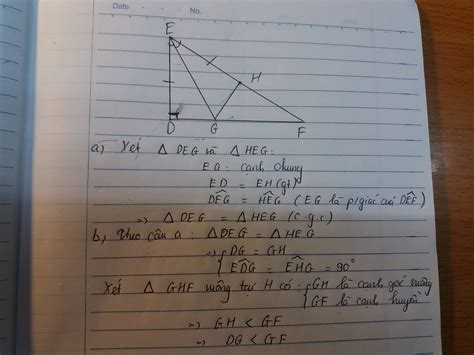 Date No.
E
H
D G F
a) Xét △ DEG và △ HEG:
EG : cạnh chung
ED = EH (gt)
DÊG = HÊG (EG là p/giác của DÊF)
=> △ DEG = △ HEG (c.g.c)
b, Theo câu a : △ DEG = △ HEG
=> { DG = GH
{ EDG = EHG = 90°
Xét △ GHF vuông tại H có : { GH là cạnh góc vuông
{ GF là cạnh huyền
=> GH < GF
=> DG < GF